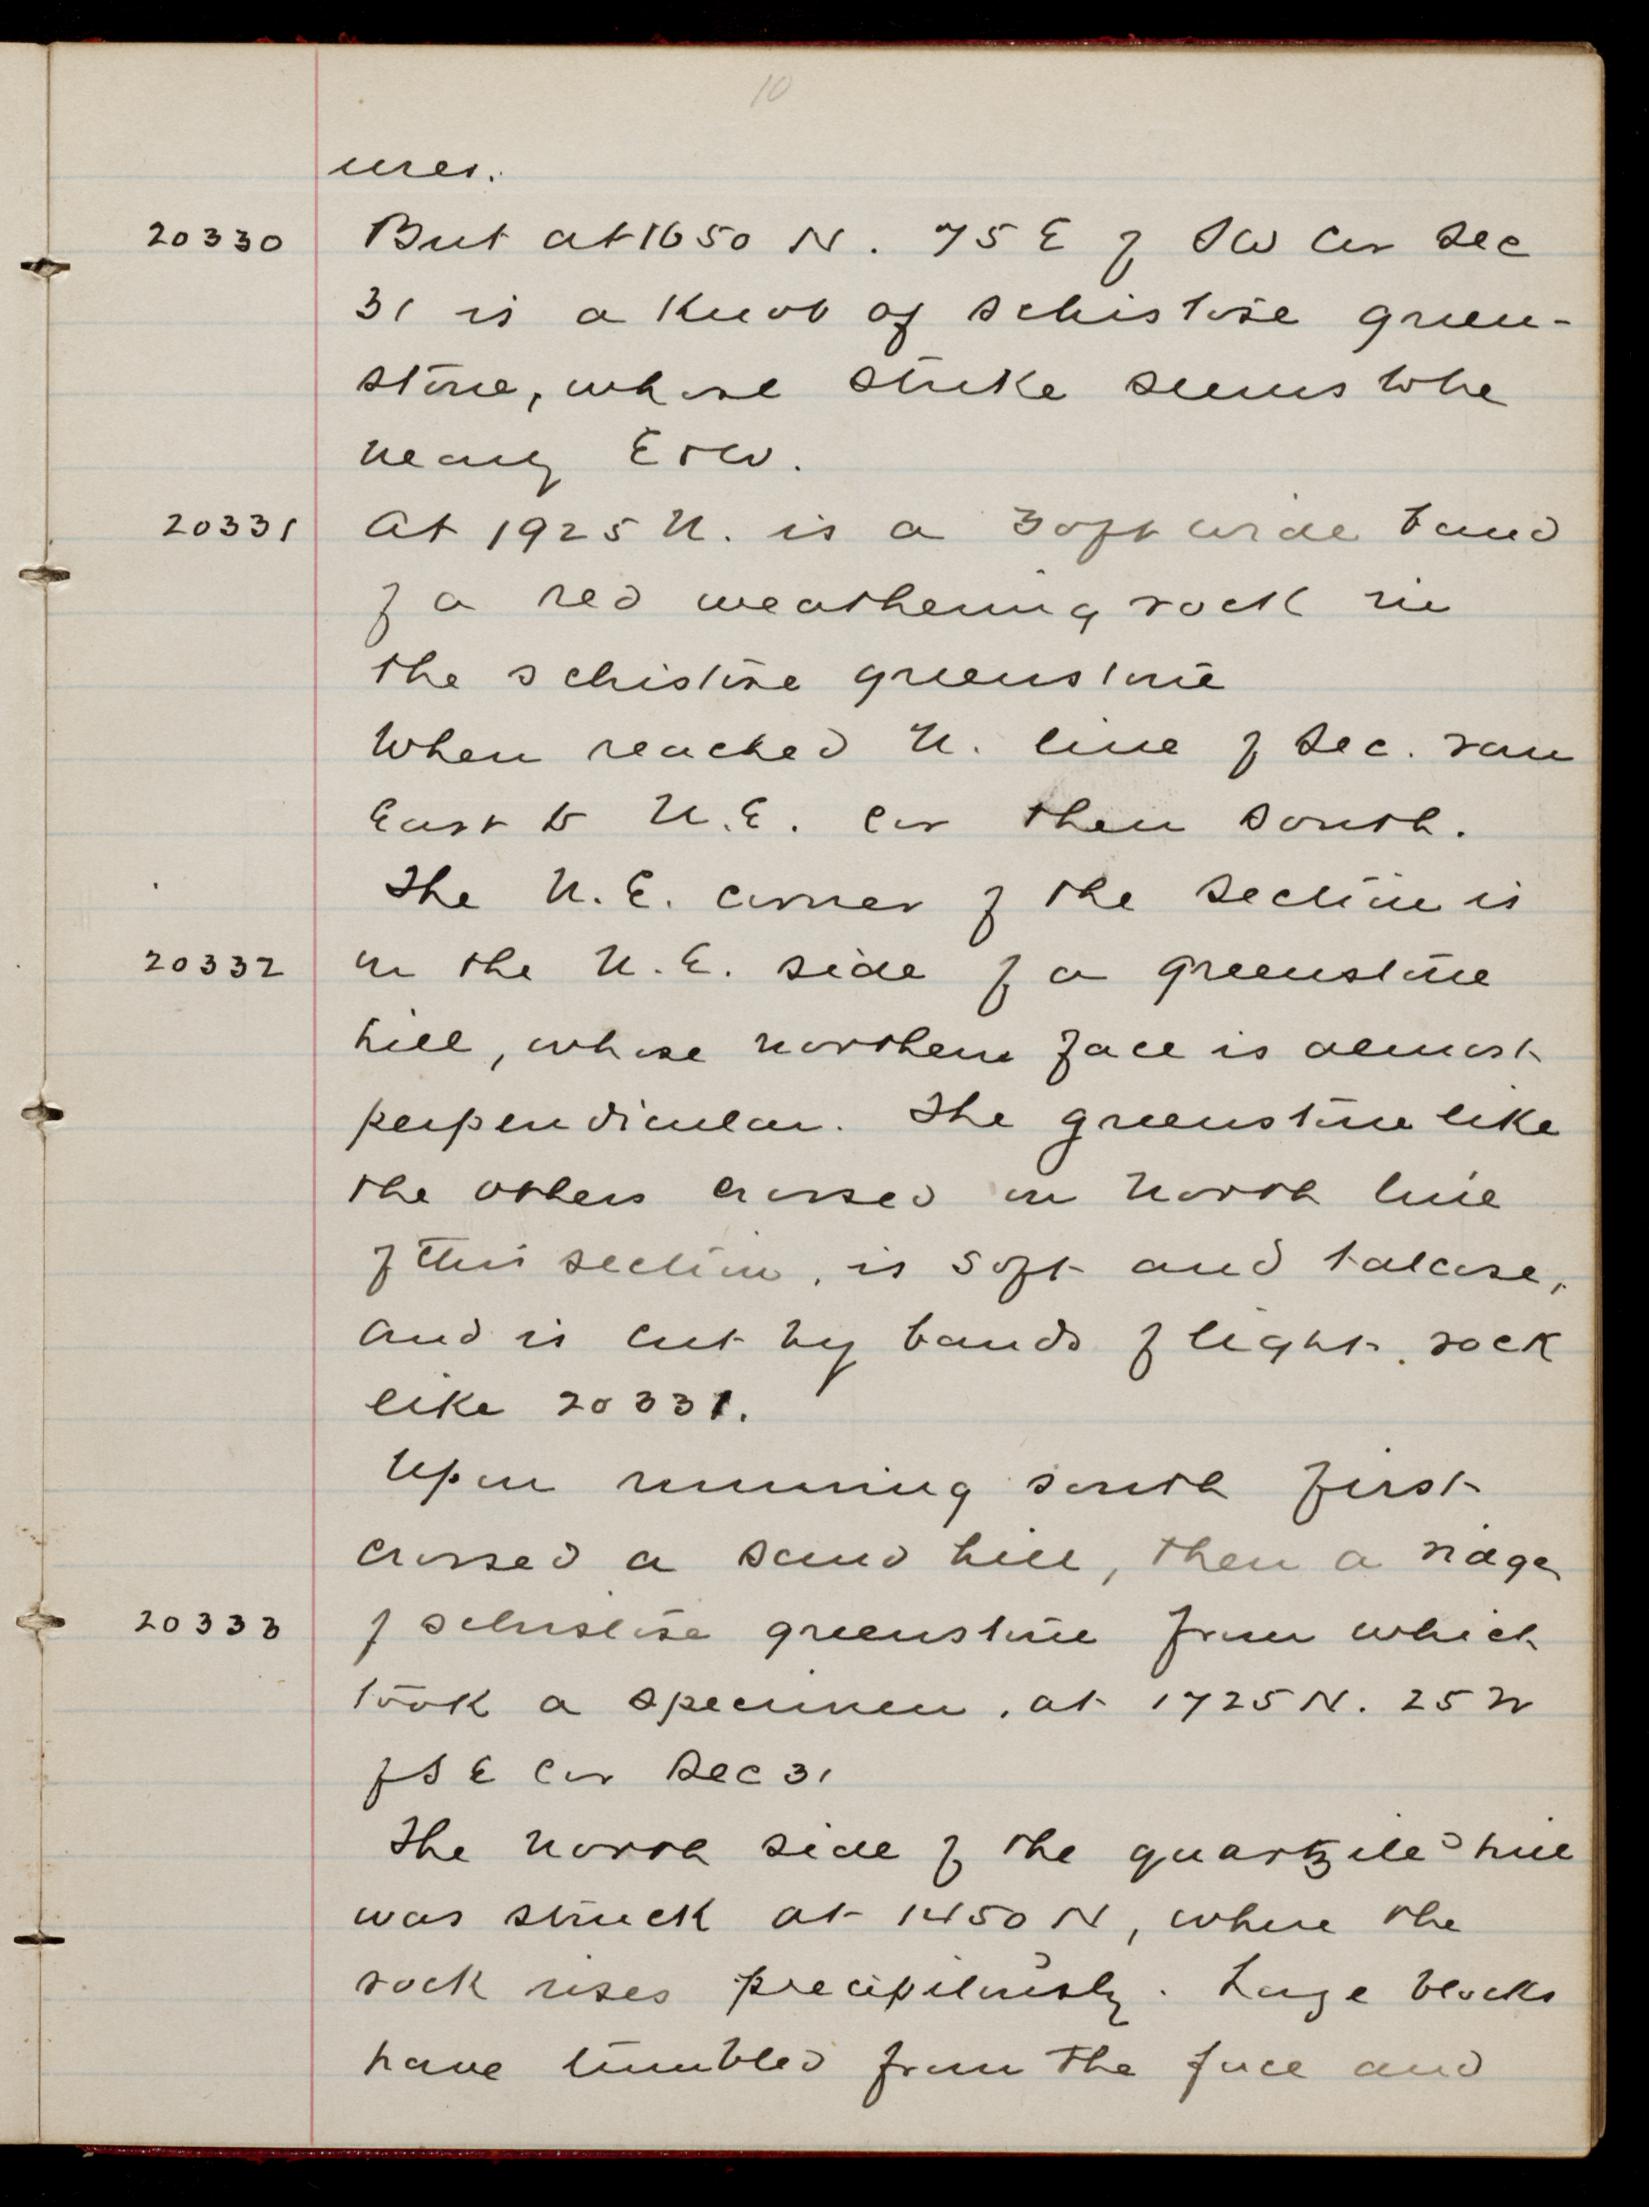 10
ures.
20330 But at 1650 N. 75 E of SW Cor Sec
31 is a Knob of schistose green-
stone, whose strike seems to be
nearly E + W.
20331 At 1925 N. is a 30 ft wide band
of a red weathering rock in
the schistose greenstone
When reached N. line of Sec. ran
East to N.E. Cor then south.
The N.E. corner of the section is
20332 on the N.E. side of a greenstone
hill, whose northern face is almost
perpendicular. The greenstone like
the others crossed on north line
of this section, is soft and talcose,
and is cut by bands of light rock
like 20331.
Upon running south first
crossed a sand hill, then a ridge
20333 of schistose greenstone from which
took a specimen, at 1725 N. 25 W
of S E Cor Sec 31
The north side of the quartzite hill
was struck at 1450 N, where the
rock rises precipitously. Large blocks
have tumbled from the face and